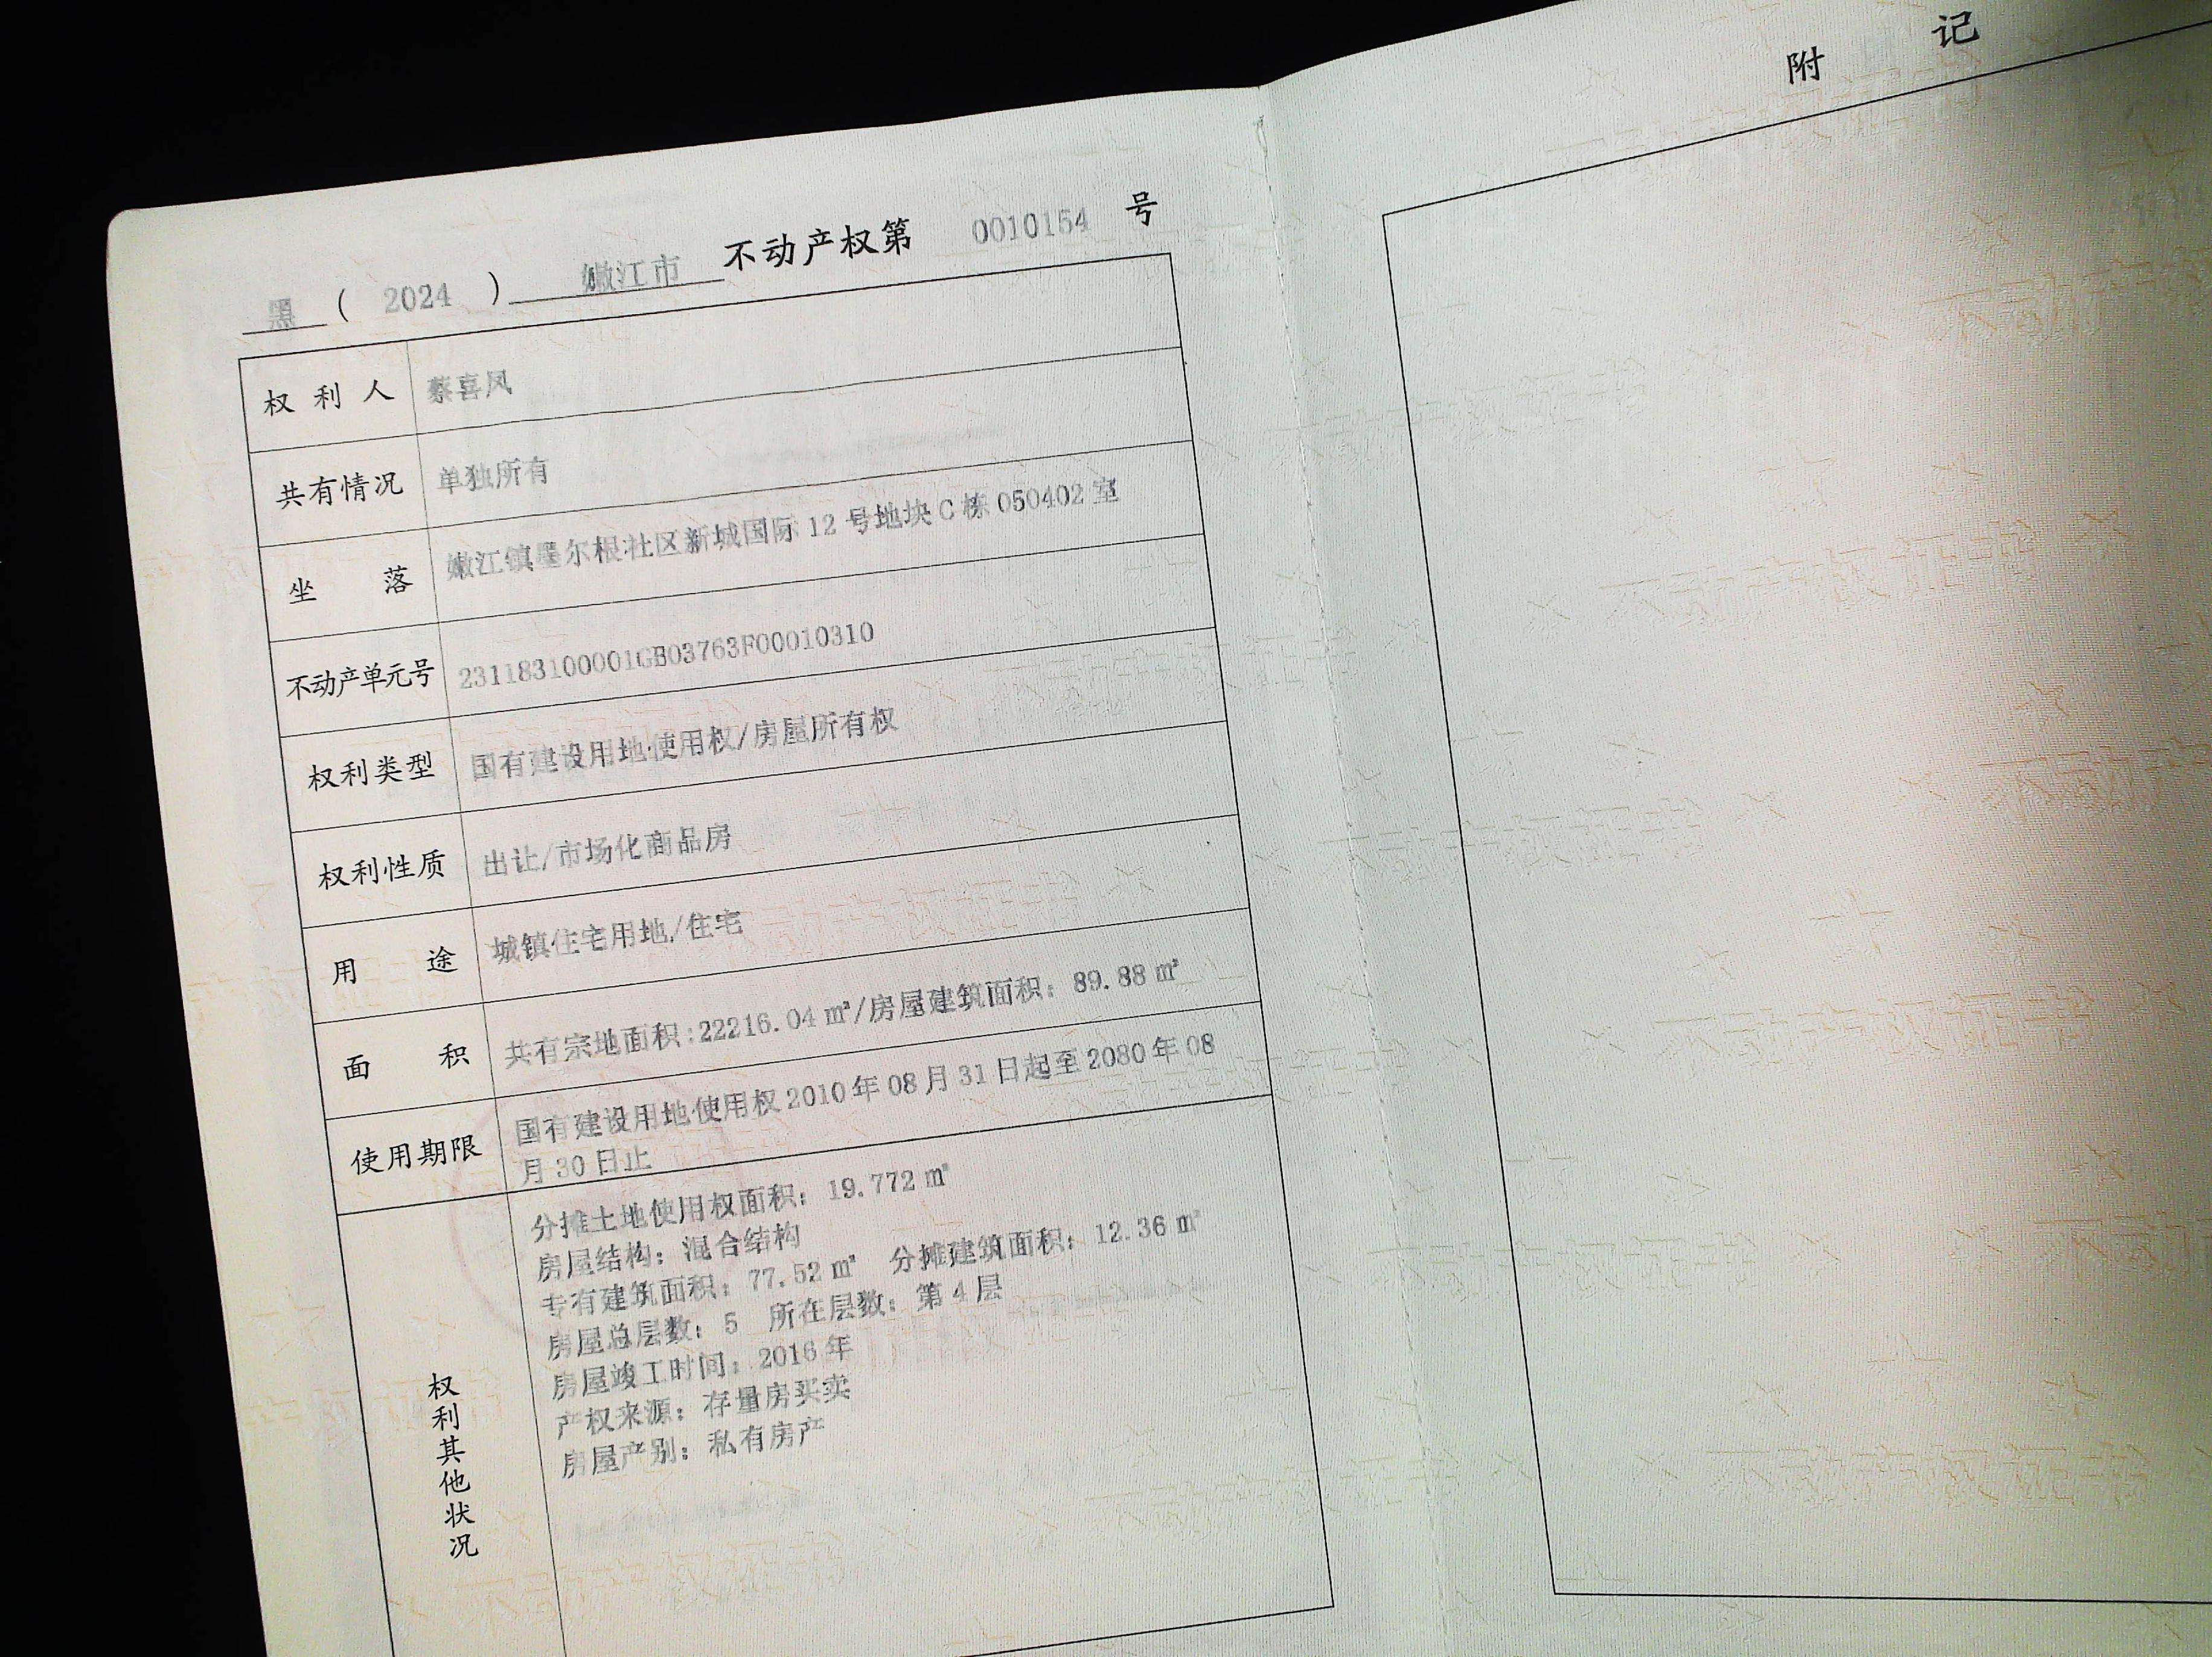 黑 ( 2024 ) 嫩江市 不动产权第 0010154 号
权利人 蔡喜凤
共有情况 单独所有
坐落 嫩江镇墨尔根社区新城国际 12 号地块 C 栋 050402 室
不动产单元号 231183100001GB03763F00010310
权利类型 国有建设用地使用权/房屋所有权
权利性质 出让/市场化商品房
用途 城镇住宅用地/住宅
面积 共有宗地面积:22216.04 ㎡/房屋建筑面积: 89.88 ㎡
使用期限 国有建设用地使用权 2010 年 08 月 31 日起至 2080 年 08
月 30 日止
权利其他状况
分摊土地使用权面积: 19.772 ㎡
房屋结构: 混合结构
专有建筑面积: 77.52 ㎡ 分摊建筑面积: 12.36 ㎡
房屋总层数: 5 所在层数: 第 4 层
房屋竣工时间: 2016 年
产权来源: 存量房买卖
房屋产别: 私有房产
附记